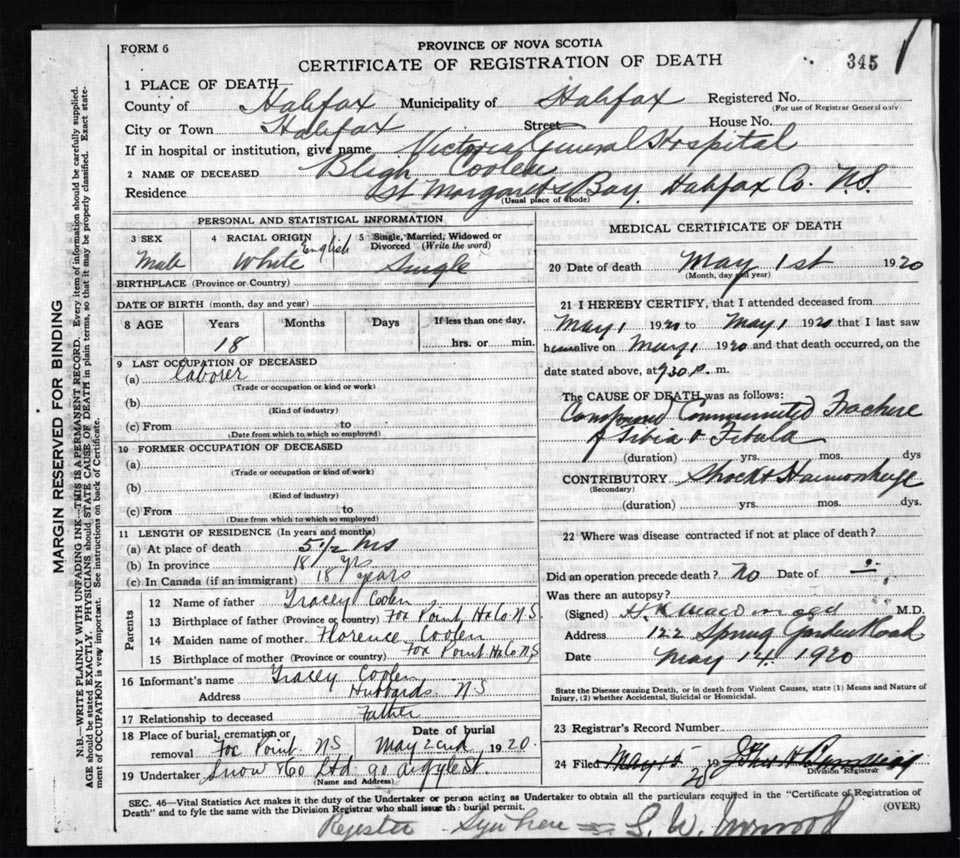 FORM 6
PROVINCE OF NOVA SCOTIA
CERTIFICATE OF REGISTRATION OF DEATH
345
1 PLACE OF DEATH
County of Halifax Municipality of Halifax Registered No.
(For use of Registrar General only
City or Town Halifax Street House No.
If in hospital or institution, give name Victoria General Hospital
2 NAME OF DECEASED Bligh Coolen
Residence St Margarets Bay Halifax Co. N.S.
(Usual place of abode)
PERSONAL AND STATISTICAL INFORMATION
3 SEX 4 RACIAL ORIGIN 5 Single, Married, Widowed or Divorced (Write the word)
Male White English Single
BIRTHPLACE (Province or Country)
DATE OF BIRTH (month, day and year)
8 AGE Years Months Days If less than one day,
18 hrs. or min.
9 LAST OCCUPATION OF DECEASED
(a) Laborer
(Trade or occupation or kind or work)
(b)
(Kind of industry)
(c) From to
(Date from which to which so employed)
10 FORMER OCCUPATION OF DECEASED
(a)
(Trade or occupation or kind of work)
(b)
(Kind of industry)
(c) From to
(Date from which to which so employed)
11 LENGTH OF RESIDENCE (In years and months)
(a) At place of death 5 1/2 hrs
(b) In province 18 yrs
(c) In Canada (if an immigrant) 18 years
Parents
12 Name of father Tracey Coolen
13 Birthplace of father (Province or country) Fox Point Hx Co N.S
14 Maiden name of mother Florence Coolen
15 Birthplace of mother (Province or country) Fox Point Hx Co N.S
16 Informant's name Tracey Coolen
Address Hubbards N S
17 Relationship to deceased Father
18 Place of burial, cremation or removal Fox Point N.S. Date of burial May 2nd 1920.
19 Undertaker Snow & Co Ltd 90 Argyle St.
(Name and Address)
MEDICAL CERTIFICATE OF DEATH
20 Date of death May 1st 1920
(Month, day and year)
21 I HEREBY CERTIFY, that I attended deceased from
May 1 1920 to May 1 1920 that I last saw
him alive on May 1 1920 and that death occurred, on the
date stated above, at 730 P. m.
The CAUSE OF DEATH was as follows:
Compound Comminuted Fracture
of Tibia & Fibula
(duration) yrs. mos. dys
CONTRIBUTORY Shock & Haemorrhage
(Secondary)
(duration) yrs. mos. dys.
22 Where was disease contracted if not at place of death?
Did an operation precede death? No Date of
Was there an autopsy?
(Signed) M.D.
Address 122 Spring Garden Road
Date May 14. 1920
State the Disease causing Death, or in death from Violent Causes, state (1) Means and Nature of
Injury, (2) whether Accidental, Suicidal or Homicidal.
23 Registrar's Record Number
24 Filed May 15 19 20
Division Registrar
SEC. 46—Vital Statistics Act makes it the duty of the Undertaker or person acting as Undertaker to obtain all the particulars required in the "Certificate of Registration of
Death" and to fyle the same with the Division Registrar who shall issue the burial permit. (OVER)
Register Sign here
MARGIN RESERVED FOR BINDING
N.B.—WRITE PLAINLY WITH UNFADING INK—THIS IS A PERMANENT RECORD. Every item of information should be carefully supplied.
AGE should be stated EXACTLY. PHYSICIANS should STATE CAUSE OF DEATH in plain terms, so that it may be properly classified. Exact state-
ment of OCCUPATION is very important. See instructions on back of Certificate.